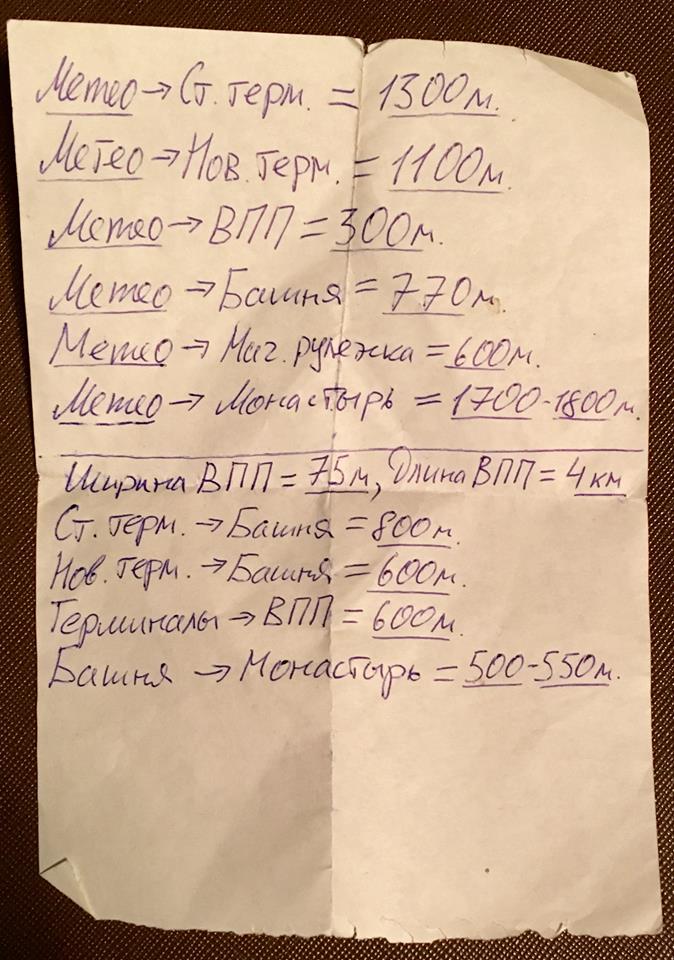 Метео → Ст. терм. = 1300м.
Метео → Нов. терм. = 1100м.
Метео → ВПП = 300м.
Метео → Башня = 770м.
Метео → Маг. рулежка = 600м.
Метео → Монастырь = 1700-1800м.
Ширина ВПП = 75м, Длина ВПП = 4км
Ст. терм. → Башня = 800м.
Нов. терм. → Башня = 600м.
Терминалы → ВПП = 600м.
Башня → Монастырь = 500-550м.